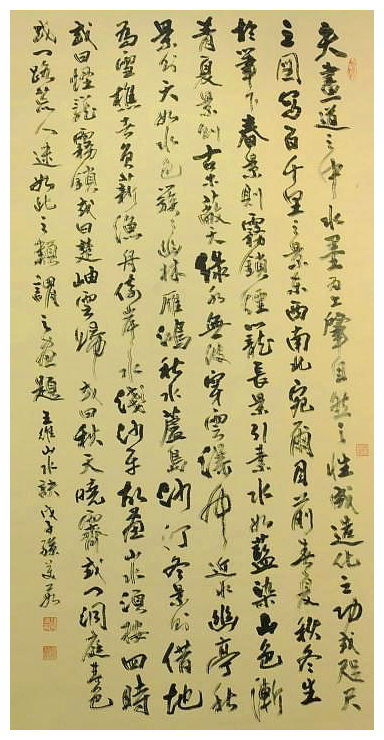 夫畫道之中水墨為上肇自然之性成造化之功或咫尺
之圖寫百千里之景東西南北宛爾目前春夏秋冬生
於筆下春景則霧鎖煙籠長景引素水如藍染山色漸
青夏景則古木蔽天綠水無波穿雲瀑布近水幽亭秋
景則天如水色簇簇幽林雁鴻秋水蘆島沙汀冬景則借地
為雪樵者負薪漁舟倚岸水淺沙平凡畫山水須按四時
或曰煙籠霧鎖或曰楚岫雲歸或曰秋天曉霽或曰洞庭春色
或曰路荒人迷如此之類謂之畫題 王維山水訣 戊子